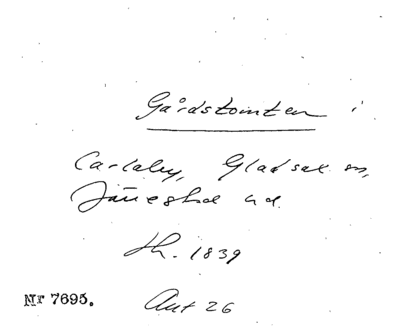 Gårdstomten i
Carlaby, Gladsax sn,
Järrestad hd.
Th. 1839
Nr 7695. Aut 26